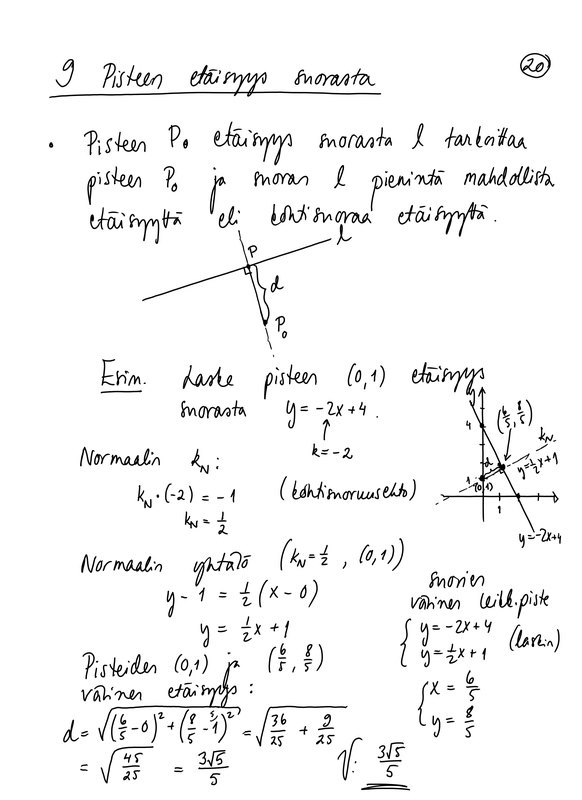 20
9 Pisteen etäisyys suorasta
• Pisteen P₀ etäisyys suorasta l tarkoittaa
pisteen P₀ ja suoran l pienintä mahdollista
etäisyyttä eli kohtisuoraa etäisyyttä.
P
l
d
P₀
Esim. Laske pisteen (0,1) etäisyys
suorasta y = -2x+4.
k = -2
y
4
(6/5, 8/5)
k_N
d
y = 1/2x+1
1
(0,1)
1
x
y = -2x+4
Normaalin k_N:
k_N · (-2) = -1 (kohtisuoruusehto)
k_N = 1/2
Normaalin yhtälö (k_N = 1/2, (0,1))
y - 1 = 1/2 (x - 0)
y = 1/2 x + 1
suorien
välinen leikk.piste
{ y = -2x+4
{ y = 1/2x+1 (laskin)
{ x = 6/5
{ y = 8/5
Pisteiden (0,1) ja (6/5, 8/5)
välinen etäisyys:
d = √((6/5 - 0)² + (8/5 - ⁵⁾1)²) = √(36/25 + 9/25)
= √(45/25) = 3√5/5
V: 3√5/5